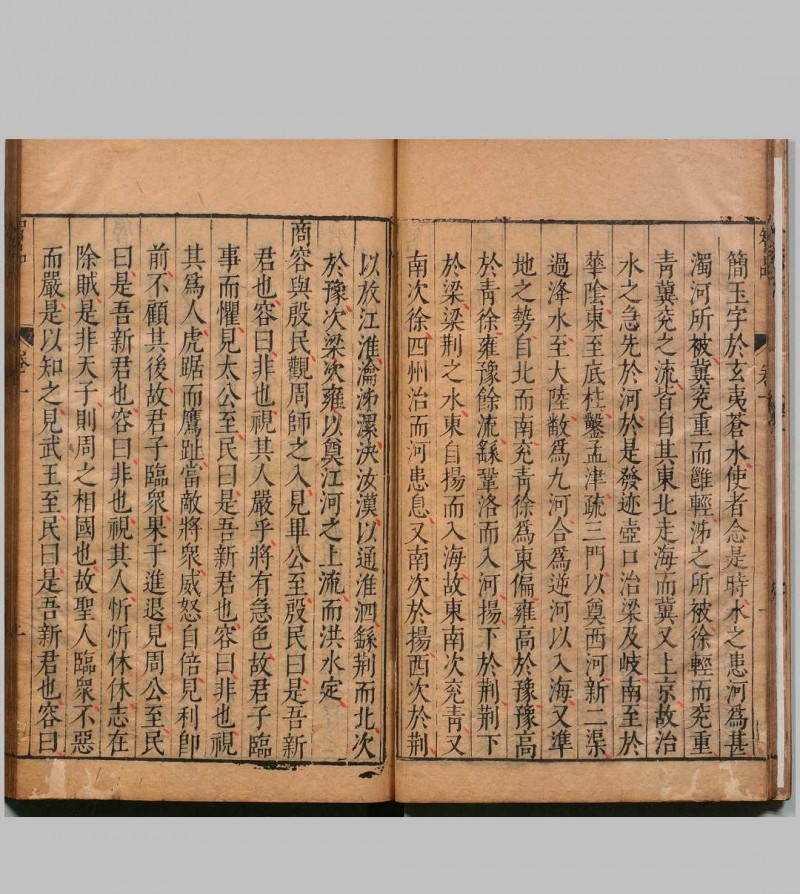 簡玉字於玄夷蒼水使者念是時水之患河為甚
濁河所被冀兖重而雝輕泲之所被徐輕而兖重
青冀兖之流皆自其東北走海而冀又上京故治
水之急先於河於是發迹壺口治梁及岐南至於
華陰東至底柱鑿孟津疏三門以奠西河新二渠
過洚水至大陸敷為九河合為逆河以入海又準
地之勢自北而南兖青徐為東偏雍高於豫豫高
於青徐雍豫餘流繇鞏洛而入河揚下於荆荆下
於梁梁荆之水東自揚而入海故東南次兖靑又
南次徐四州治而河患息又南次於揚西次於荆
以放江淮瀹泲漯決汝漢以通淮泗繇荆而北次
於豫次梁次雍以奠江河之上流而洪水定
商容與殷民觀周師之入見畢公至殷民曰是吾新
君也容曰非也視其人嚴乎將有急色故君子臨
事而懼見太公至民曰是吾新君也容曰非也視
其為人虎踞而鷹趾當敵將衆威怒自倍見利卽
前不顧其後故君子臨衆果于進退見周公至民
曰是吾新君也容曰非也視其人忻忻休休志在
除賊是非天子則周之相國也故聖人臨衆不惡
而嚴是以知之見武王至民曰是吾新君也容曰
卷一